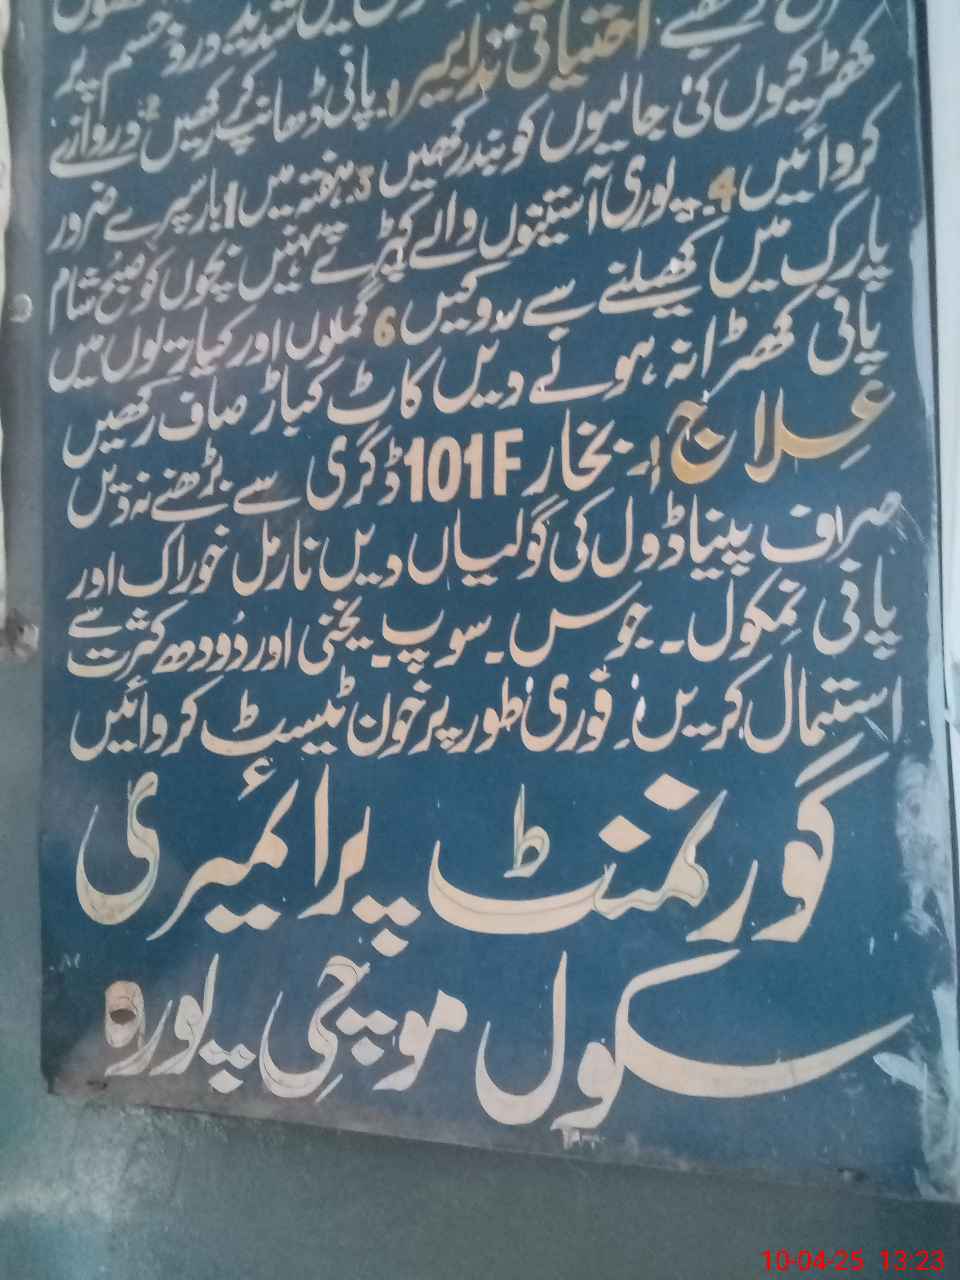 میں شدید درد جسم پر
احتیاطی تدابیر 1۔ پانی ڈھانپ کر رکھیں 2۔ دروازے
کھڑکیوں کی جالیوں کو بند رکھیں 3۔ ہفتہ میں 1 بار سپرے ضرور
کروائیں 4۔ پوری آستینوں والے کپڑے پہنیں بچوں کو صبح شام
پارک میں کھیلنے سے روکیں 6 گملوں اور کیاریوں میں
پانی کھڑا نہ ہونے دیں کاٹ کباڑ صاف رکھیں
علاج 1۔ بخار 101F ڈگری سے بڑھنے نہ دیں
صراف پیناڈول کی گولیاں دیں نارمل خوراک اور
پانی نمکول۔ جوس۔ سوپ۔ یخنی اور دُودھ کثرت سے
استعمال کریں۔ فوری طور پر خون ٹیسٹ کروائیں
گورنمنٹ پرائمیری
سکول موچی پورہ
10-04-25 13:23